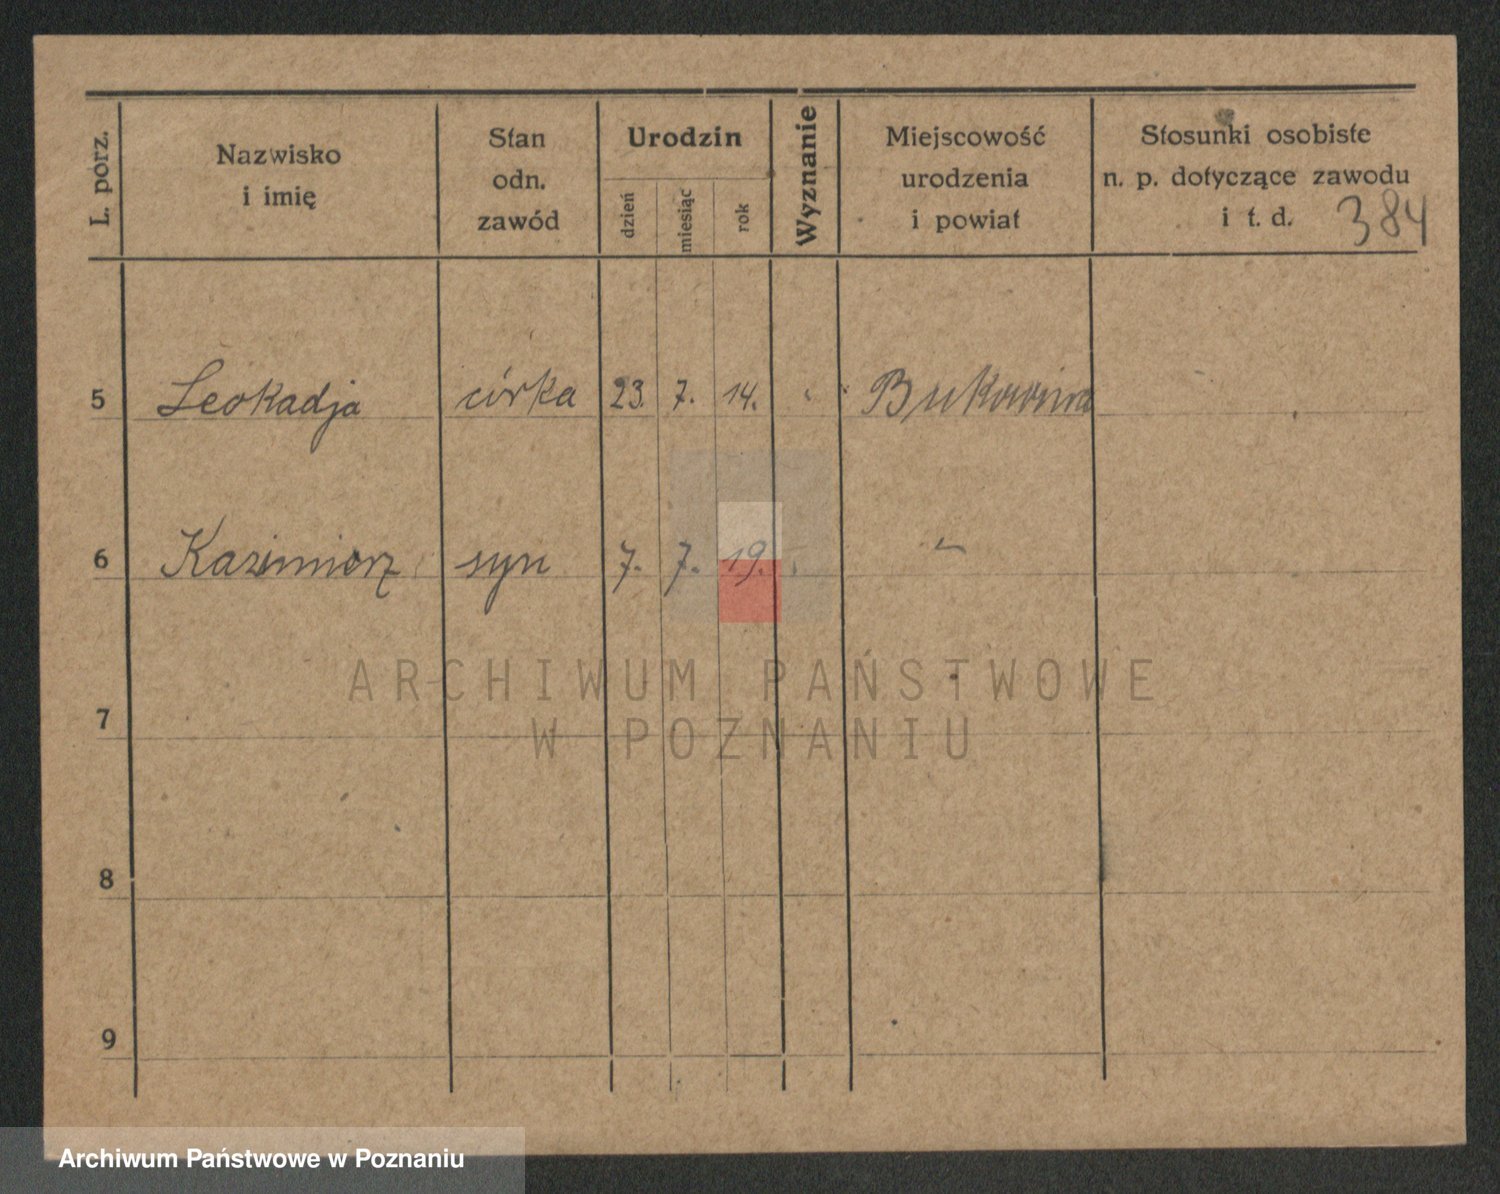 L. porz.
Nazwisko
i imię
Stan
odn.
zawód
Urodzin
dzień
miesiąc
rok
Wyznanie
Miejscowość
urodzenia
i powiat
Stosunki osobiste
n. p. dotyczące zawodu
i t. d.
384
5 Leokadja córka 23. 7. 14. Bukowina
6 Kazimierz syn 7. 7. 19.
ARCHIWUM PAŃSTWOWE
W POZNANIU
7
8
9
Archiwum Państwowe w Poznaniu